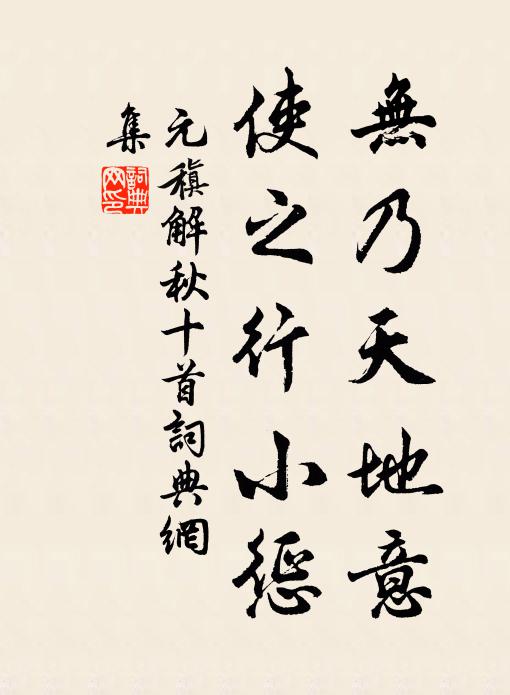 無乃天地意
使之行小惩
元稹解秋十首詞典網
集
詞典
网印